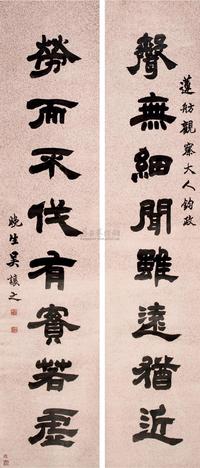 蓮舫觀察大人鈞政
聲無細聞雖遠猶近
勞而不伐有實若虛
晚生吳讓之